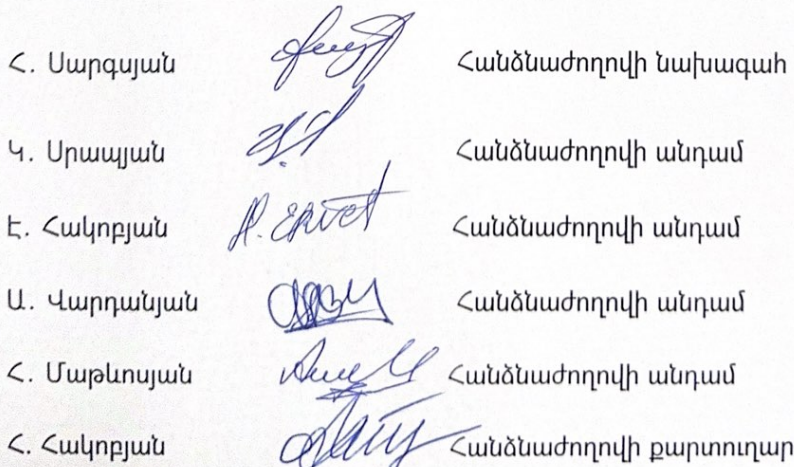 Հ. Սարգսյան Հանձնաժողովի նախագահ
Կ. Սրապյան Հանձնաժողովի անդամ
Է. Հակոբյան Հանձնաժողովի անդամ
Ա. Վարդանյան Հանձնաժողովի անդամ
Հ. Մաթևոսյան Հանձնաժողովի անդամ
Հ. Հակոբյան Հանձնաժողովի քարտուղար